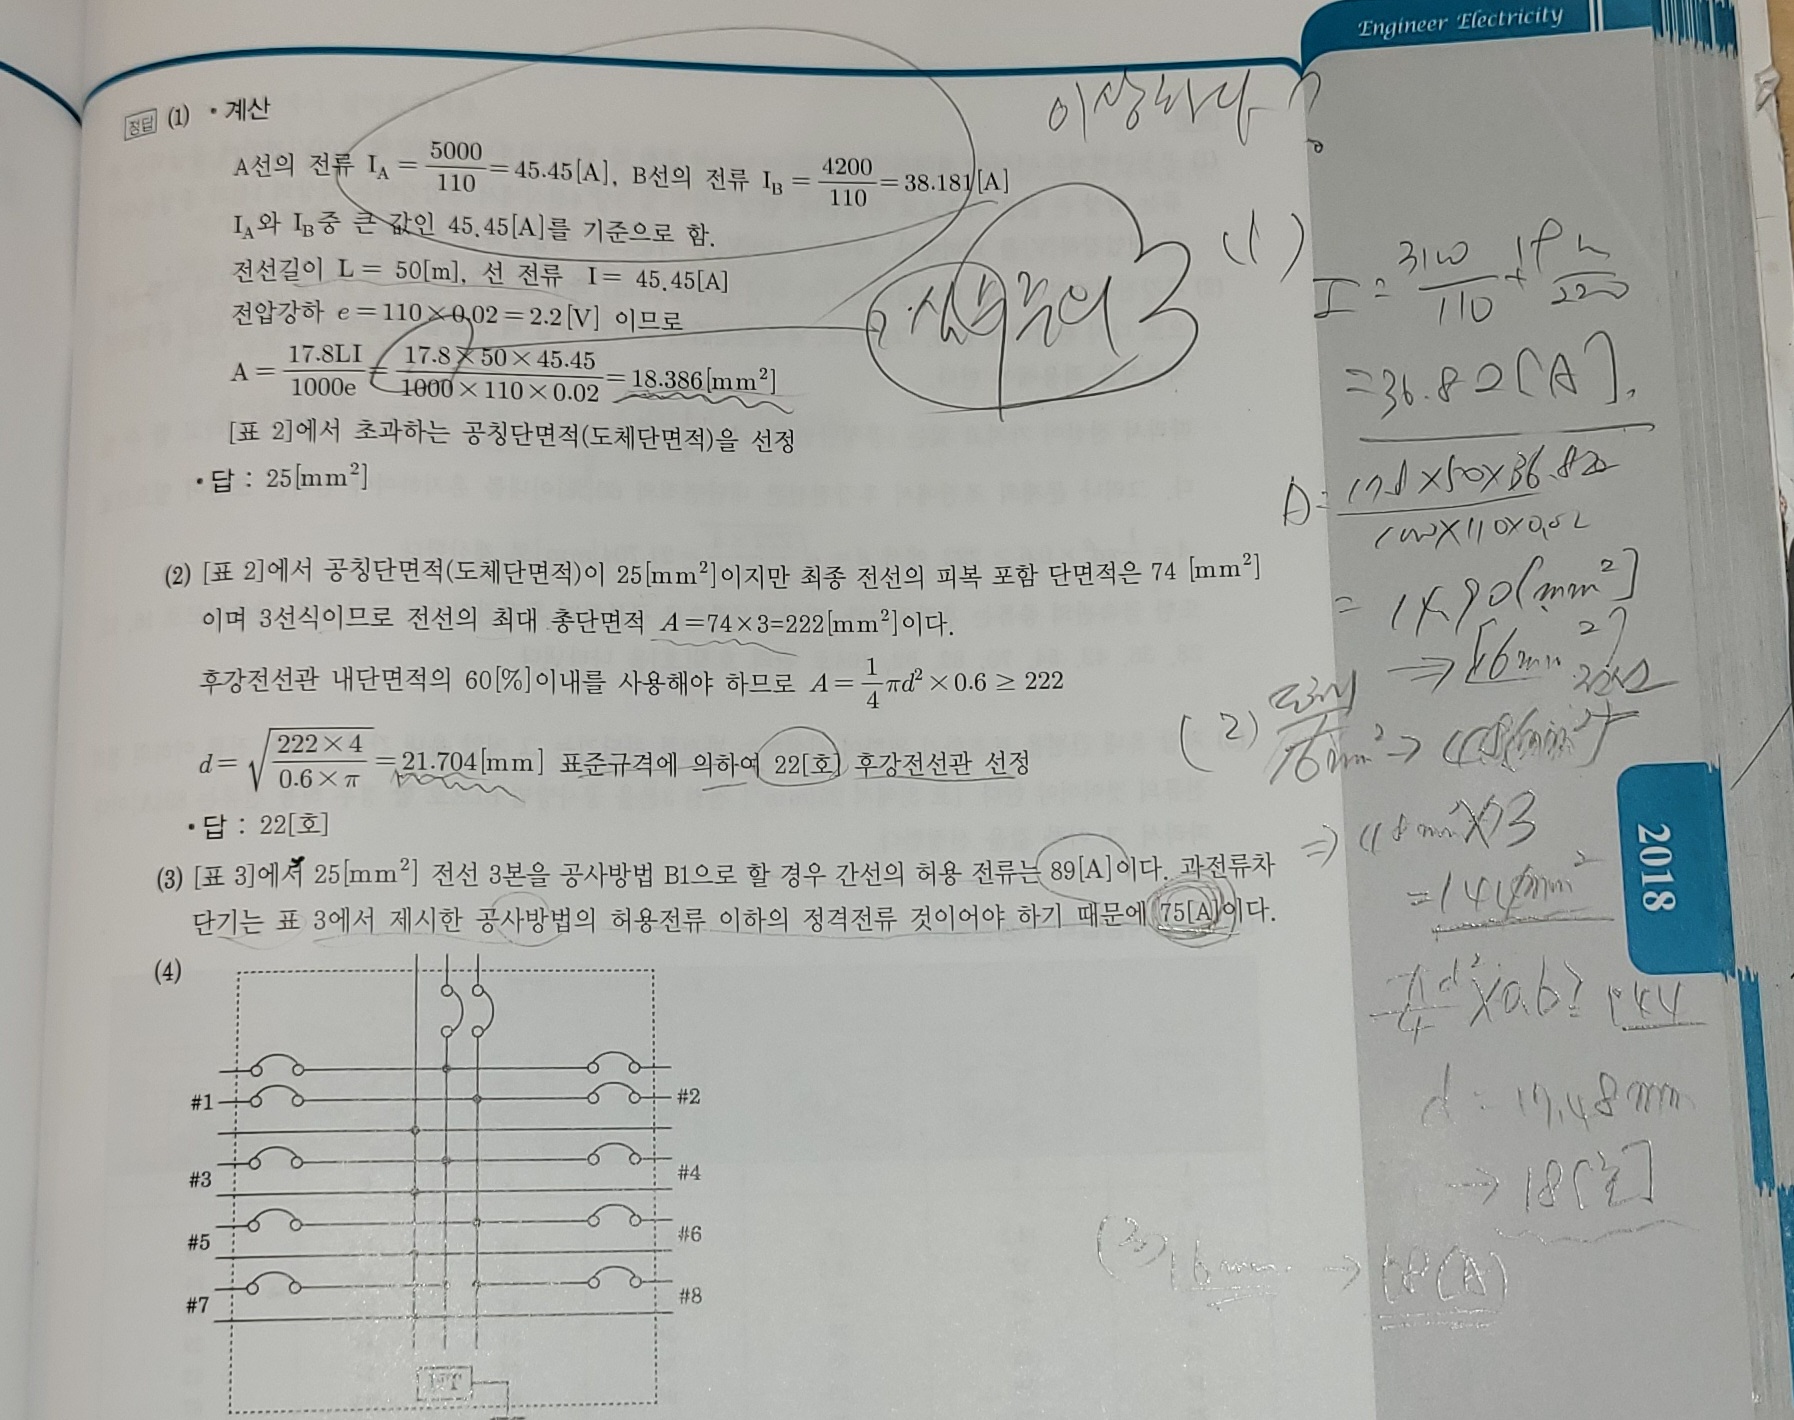 Engineer Electricity
이상하다?
정답 (1) • 계산
A선의 전류 I_A = 5000/110 = 45.45[A], B선의 전류 I_B = 4200/110 = 38.181[A]
I_A와 I_B중 큰 값인 45.45[A]를 기준으로 함.
전선길이 L = 50[m], 선 전류 I = 45.45[A]
전압강하 e = 110×0.02 = 2.2[V] 이므로
A = 17.8LI/1000e = 17.8×50×45.45/1000×110×0.02 = 18.386[mm²]
[표 2]에서 초과하는 공칭단면적(도체단면적)을 선정
• 답 : 25[mm²]
(2) [표 2]에서 공칭단면적(도체단면적)이 25[mm²]이지만 최종 전선의 피복 포함 단면적은 74 [mm²]
이며 3선식이므로 전선의 최대 총단면적 A=74×3=222[mm²]이다.
후강전선관 내단면적의 60[%]이내를 사용해야 하므로 A = 1/4 πd² × 0.6 ≥ 222
d = √(222×4/0.6×π) = 21.704[mm] 표준규격에 의하여 22[호] 후강전선관 선정
• 답 : 22[호]
(3) [표 3]에서 25[mm²] 전선 3본을 공사방법 B1으로 할 경우 간선의 허용 전류는 89[A]이다. 과전류차
단기는 표 3에서 제시한 공사방법의 허용전류 이하의 정격전류 것이어야 하기 때문에 75[A]이다.
(4)
#1 #2
#3 #4
#5 #6
#7 #8
(1)
= 36.82[A].
A = 17.8×50×36.82/1000×110×0.02
= 14.90[mm²]
⇒ 16mm²
(2)
16mm² →
⇒ 48mm²×3
= 144mm²
πd²/4 ×0.6 ≥ 144
d = 17.48mm
→ 18[호]
(3) 16mm → 68(A)
2018